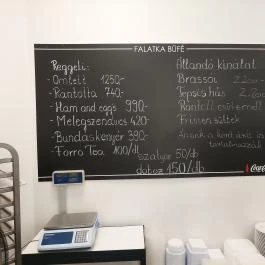 FALATKA BÜFÉ
Reggeli:
- Omlett 1250,-
- Rántotta 740,-
- Ham and eggs 990,-
- Melegszendvics 420,-
- Bundáskenyér 390,-
- Forró Tea 100/dl
szalvéta 50/db
doboz 150/db
Állandó kínálat
Brassói 2.200,-
Tepsis hús 2.200
Rántott csirkemell
Frissensültek
Áraink a köretet is
tartalmazzák